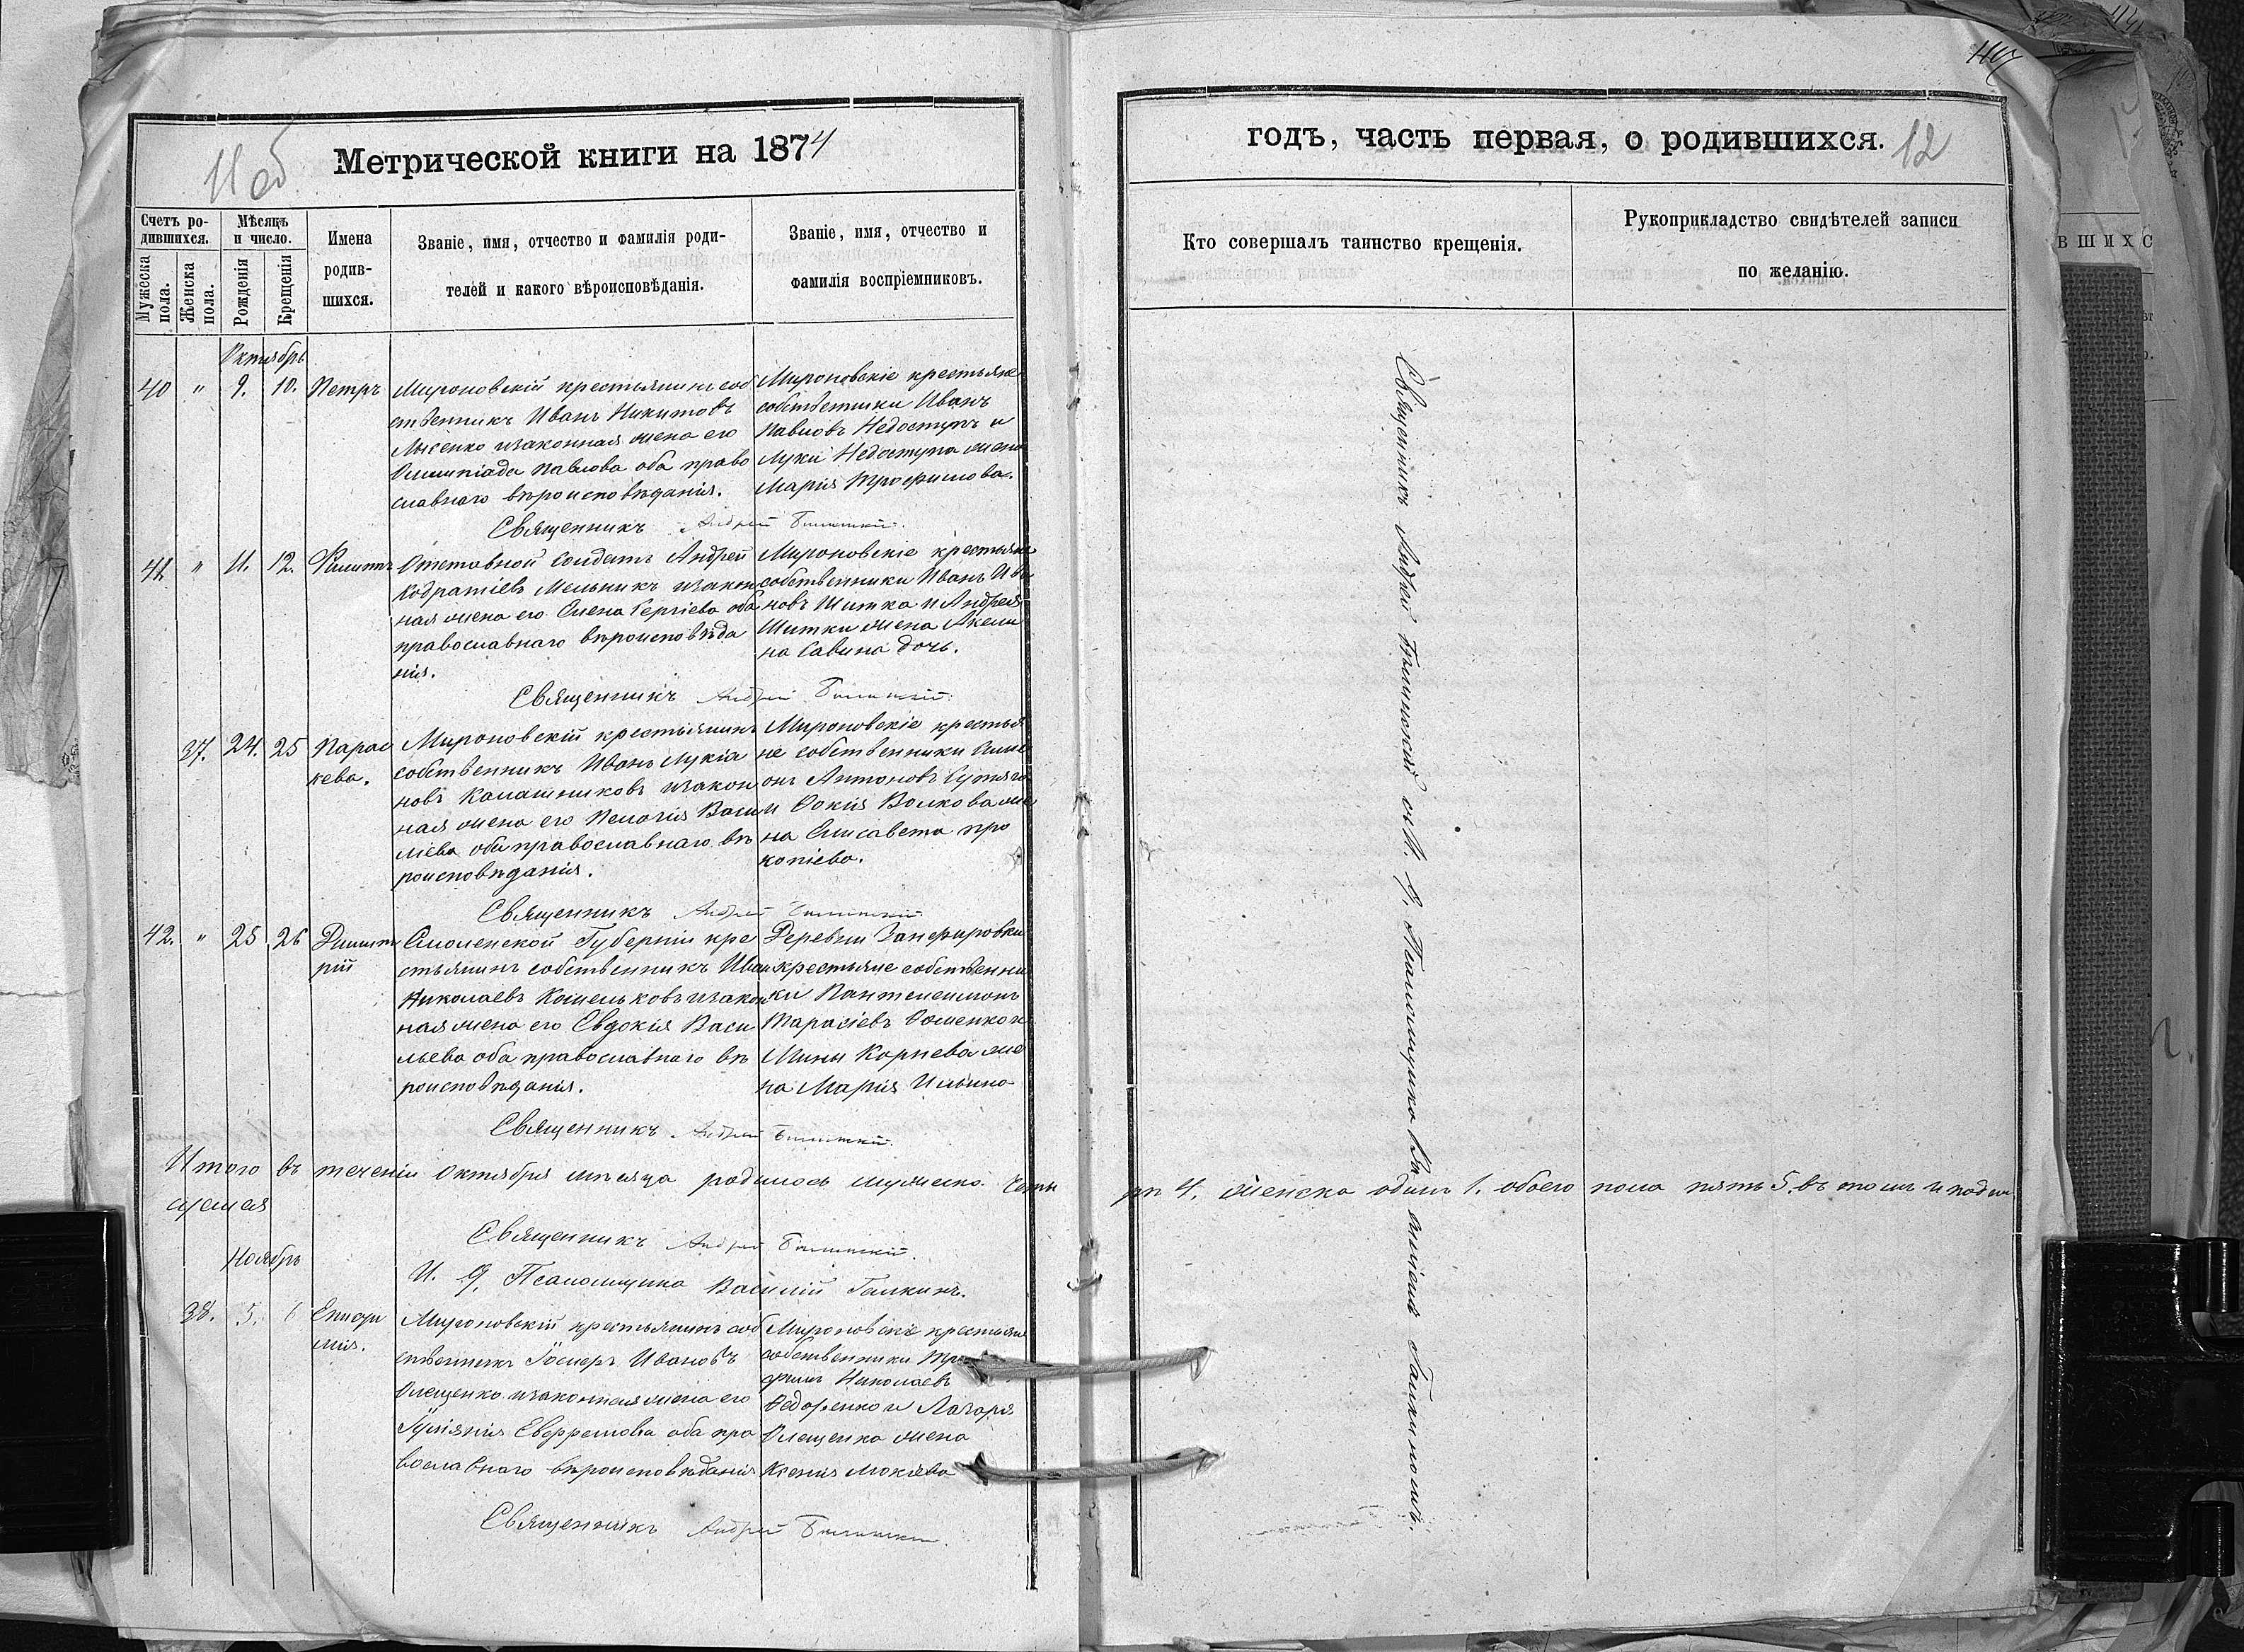 11 об
Метрической книги на 1874
Счетъ ро-
дившихся.
Мужеска
пола.
Женска
пола.
Мѣсяцъ
и число.
Рожденія
Крещенія
Имена
родив-
шихся.
Званіе, имя, отчество и фамилія роди-
телей и какого вѣроисповѣданія.
Званіе, имя, отчество и
фамилія воспріемниковъ.
Октябрь
40 " 9. 10. Петръ
Мироновскій крестьянинъ соб
ственникъ Иванъ Никитовъ
Лысенко изаконная жена его
Олимпіада Павлова оба право
славнаго вѣроисповѣданія.
Мироновскіе крестьяне
собственники Иванъ
Павловъ Недоступъ и
Луки Недоступа жена
Марія Трофимова.
Священникъ Андрей
41 " 11. 12. Филиппъ
Отставной Солдатъ Андрей
Кодратіевъ Мельникъ изакон
ная жена его Елена Сергіева оба
православнаго вѣроисповѣда
нія.
Мироновскіе крестьяне
собственники Иванъ Ива
новъ Шитка и Андрея
Шитки жена Акели
на Савина дочь.
Священникъ Андрей
37. 24. 25 Парас
кева.
Мироновскій крестьянинъ
собственникъ Иванъ Лукіа
новъ Калашниковъ изакон
ная жена его Пелагія Васи
ліева оба православнаго вѣ
роисповѣданія.
Мироновскіе крестья
не собственники Симе
онъ Антоновъ
и Фокія Волкова же
на Елисавета про
копіева.
Священникъ Андрей
42. " 25 26 Димит
рій
Смоленской Губерніи кре
стьянинъ собственникъ Иван
Николаевъ Кошельковъ изакон
ная жена его Евдокія Васи
льева оба православнаго вѣ
роисповѣданія.
Деревни Занфировки
крестьяне собственни
ки Пантелеимонъ
Тарасіевъ Фоменко и
Мины Корнева же
на Марія Ильина
Священникъ Андрей
Итого въ теченіи Октября мѣсяца родилось мужеска четы
Священникъ Андрей
И. д. Псаломщика Василій Галкинъ.
Ноябрь
38. 5. 6 Епифи
мія.
Мироновскій крестьянинъ соб
ственникъ Іосифъ Ивановъ
Олещенко изаконная жена его
Іуліянія Евфремова оба пра
вославнаго вѣроисповѣданія
Мироновскіе крестьяне
собственники Тро
фимъ Николаевъ
Федоренко и Лазаря
Олещенка жена
Ксенія
Священникъ Андрей
годъ, часть первая, о родившихся.
12
Кто совершалъ таинство крещенія.
Рукоприкладство свидѣтелей записи
по желанію.
Священникъ Андрей съ И. д. Псаломщика Василіемъ Галкиномъ.
ри 4. женска одинъ 1. обоего пола пять 5.